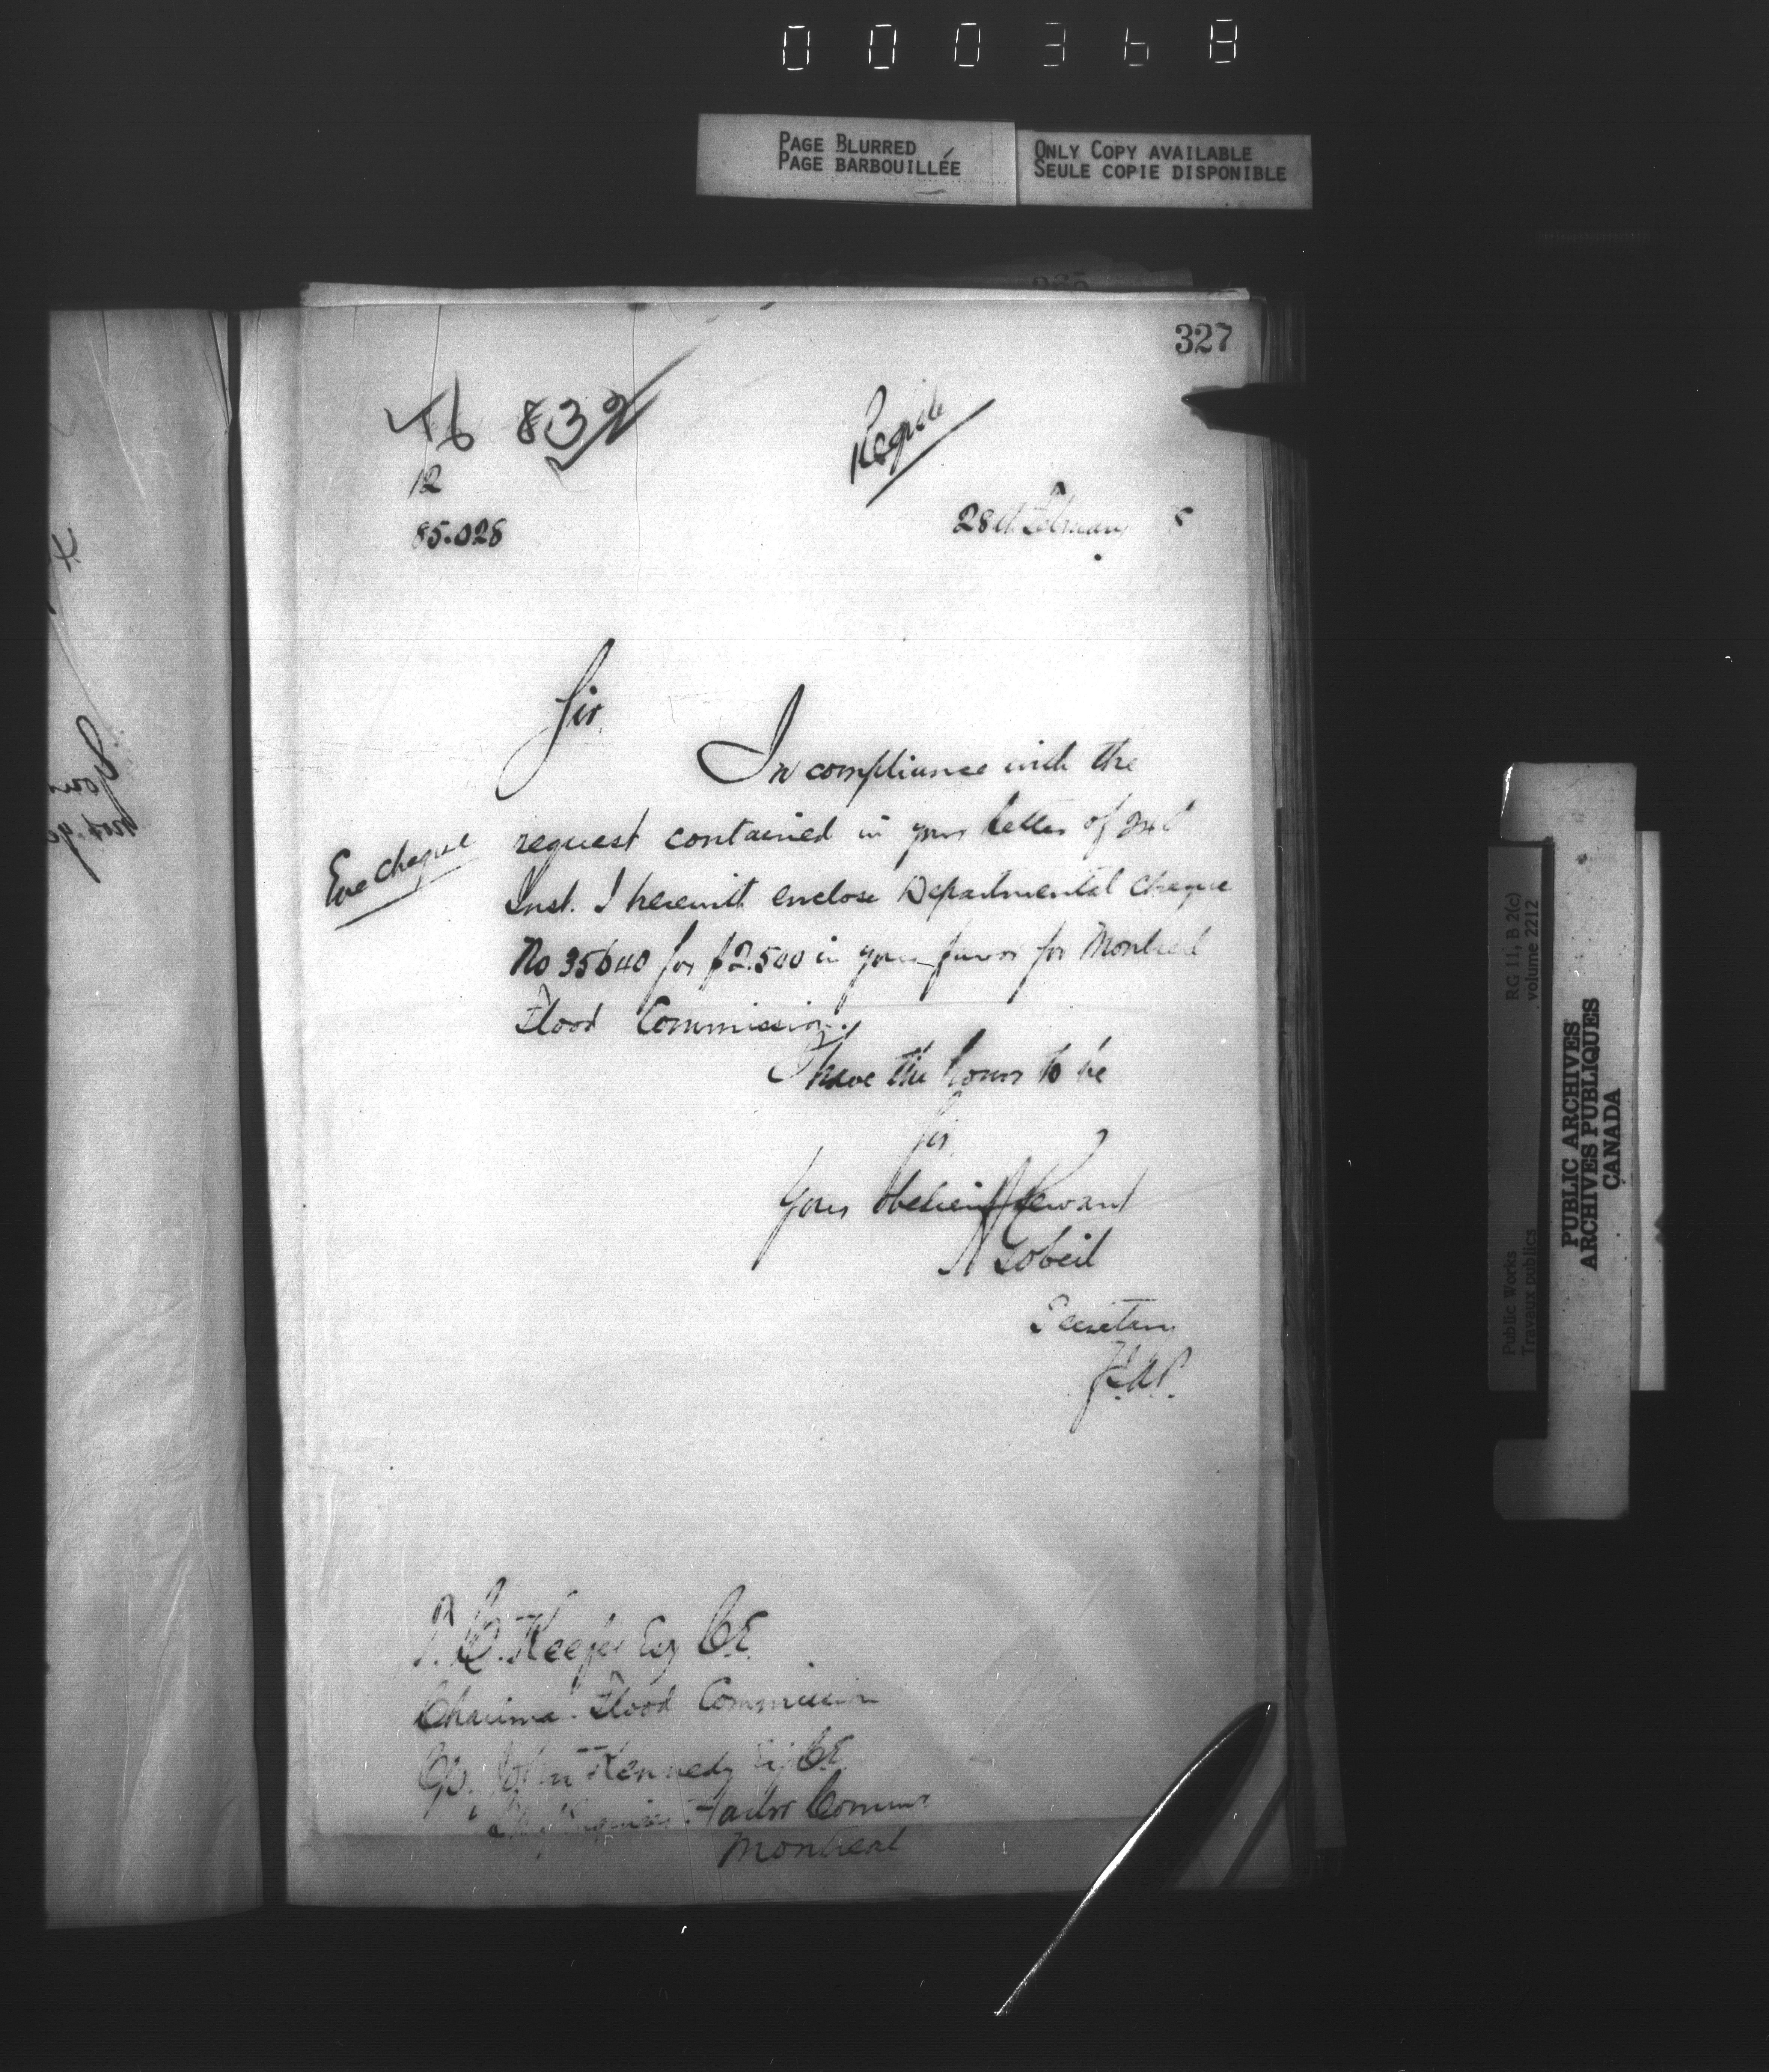 000368
PAGE BLURRED
PAGE BARBOUILLÉE
ONLY COPY AVAILABLE
SEULE COPIE DISPONIBLE
327
832
12
85.028
28th February
Sir.
In compliance with the
request contained in your letter of 24th
Inst. I herewith enclose Departmental cheque
No 35640 for $2.500 in your favor for Montreal
Flood Commission.
Enc cheque
I have the honor to be
Sir
Your obedient Servant
A Gobeil
Secretary
T. C. Keefer Esq C.E.
Chairman Flood Commission
John Kennedy Esq C.E.
Harbor Commrs
Montreal
RG 11, B 2(c)
volume 2212
Public Works
Travaux publics
PUBLIC ARCHIVES
ARCHIVES PUBLIQUES
CANADA